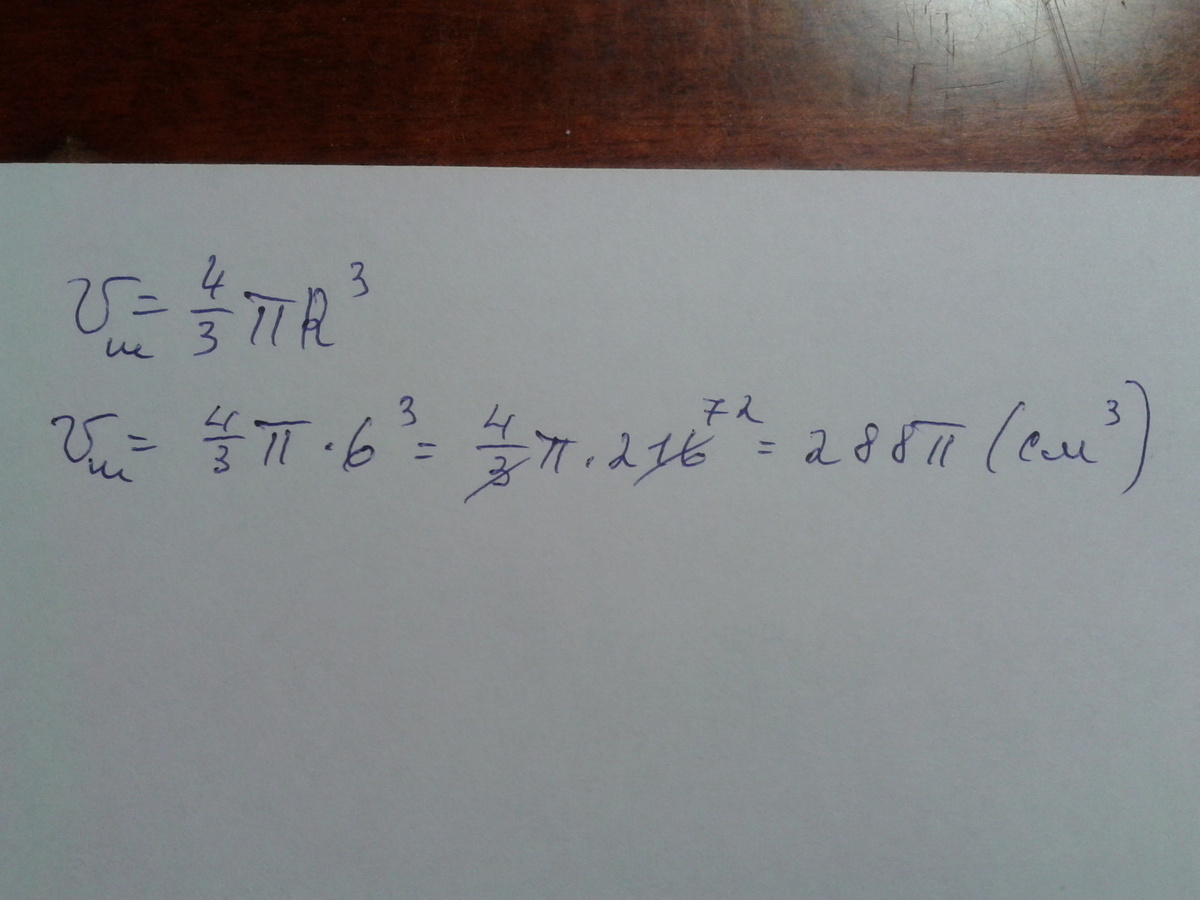 Vш = 4/3 πR³
Vш = 4/3 π · 6³ = 4/3 π · 216 72 = 288π (см³)